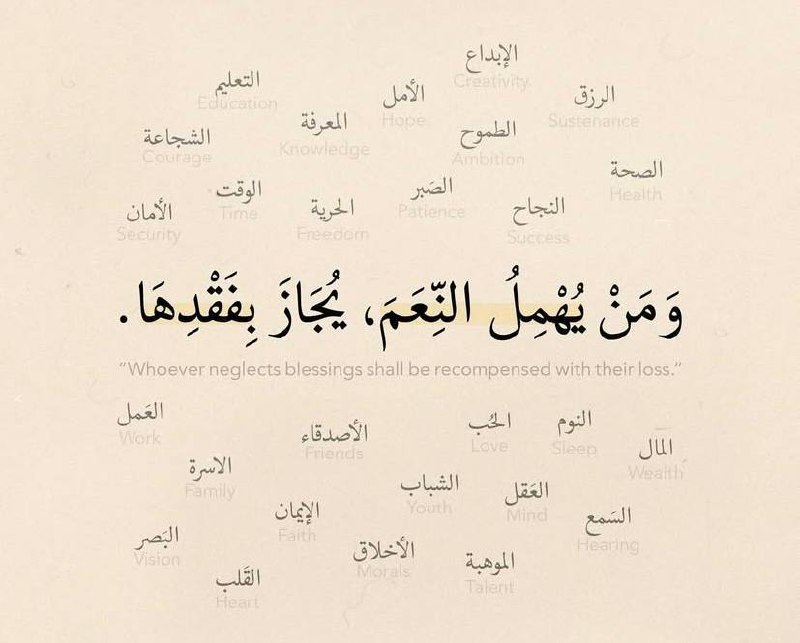 الإبداع
Creativity
التعليم
Education
الأمل
Hope
الرزق
Sustenance
المعرفة
Knowledge
الشجاعة
Courage
الطموح
Ambition
الصحة
Health
الوقت
Time
الصَبر
Patience
الأمان
Security
الحرية
Freedom
النجاح
Success
وَمَنْ يُهْمِلُ النِّعَمَ، يُجَازَ بِفَقْدِهَا.
“Whoever neglects blessings shall be recompensed with their loss.”
العَمل
Work
الأصدقاء
Friends
الحُب
Love
النوم
Sleep
المال
Wealth
الاسرة
Family
الشباب
Youth
العَقل
Mind
الإيمان
Faith
السَمع
Hearing
البَصر
Vision
الأخلاق
Morals
الموهبة
Talent
القَلب
Heart